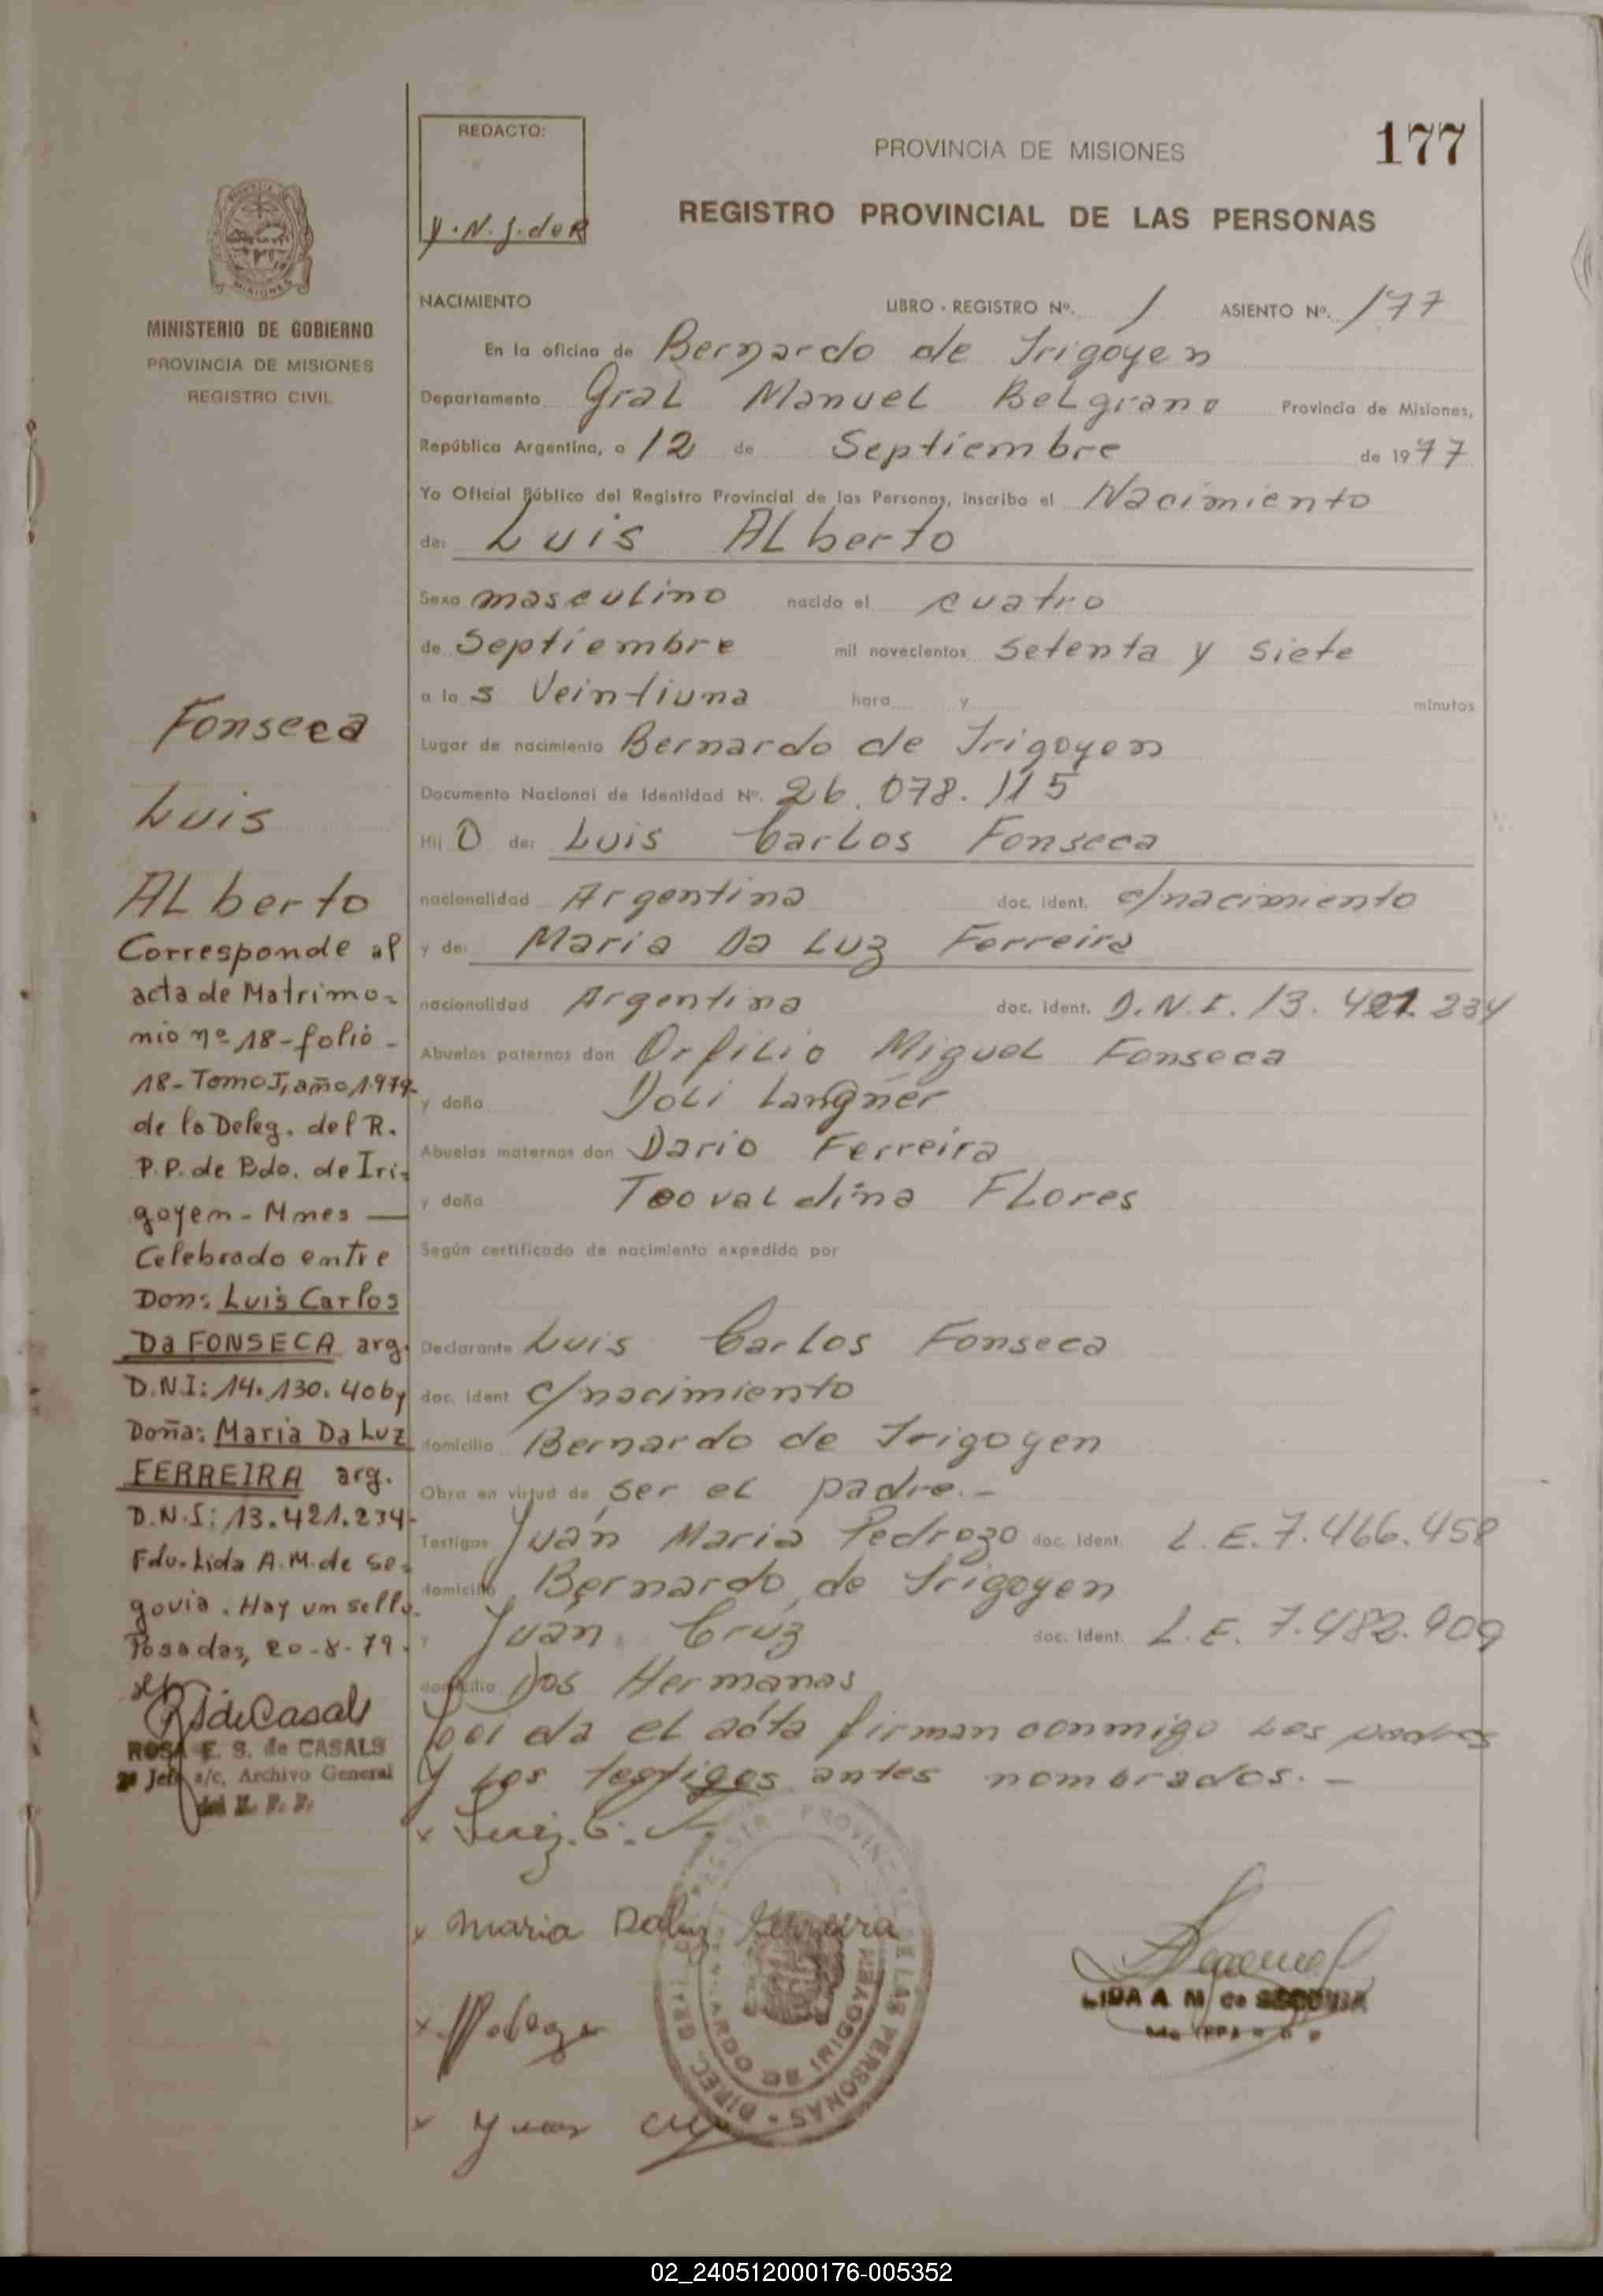 REDACTO:
Y.N.J.deR
PROVINCIA DE MISIONES
177
REGISTRO PROVINCIAL DE LAS PERSONAS
MISIONES
MINISTERIO DE GOBIERNO
PROVINCIA DE MISIONES
REGISTRO CIVIL
NACIMIENTO LIBRO - REGISTRO Nº. 1 ASIENTO Nº. 177
En la oficina de Bernardo de Irigoyen
Departamento Gral Manuel Belgrano Provincia de Misiones,
República Argentina, a 12 de Septiembre de 1977
Yo Oficial Público del Registro Provincial de las Personas, inscribo el Nacimiento
de: Luis ALberto
Sexo masculino nacido el cuatro
de Septiembre mil novecientos setenta y siete
a las Veintiuna hora y minutos
Lugar de nacimiento Bernardo de Irigoyen
Documento Nacional de Identidad Nº. 26.078.115
Hij O de: Luis Carlos Fonseca
nacionalidad Argentina doc. ident. c/nacimiento
y de: Maria Da Luz Ferreira
nacionalidad Argentina doc. ident. D.N.I. 13.421.234
Abuelos paternos don Orfilio Miguel Fonseca
y doña Doli Langner
Abuelos maternos don Dario Ferreira
y doña Teovaldina Flores
Según certificado de nacimiento expedido por
Declarante Luis Carlos Fonseca
doc. ident c/nacimiento
domicilio Bernardo de Irigoyen
Obra en virtud de ser el padre.-
Testigos Juan Maria Pedrozo doc. ident. L.E. 7.466.458
domicilio Bernardo de Irigoyen
y Juan Cruz doc. ident. L.E. 7.482.909
domicilio Dos Hermanas
Leida el acta firman conmigo los padres
y los testigos antes nombrados.-
x Luiz. C. F.
x Maria Daluz Ferreira
x
x Juan Cruz
LIDA A M de SEGOVIA
Fonseca
Luis
ALberto
Corresponde al
acta de Matrimo-
nio nº 18-folio-
18-Tomo I, año 1.979-
de la Deleg. del R.
P.P. de Bdo. de Iri-
goyen - Mnes —
Celebrado entre
Don: Luis Carlos
Da FONSECA arg.
D.N.I: 14.130.406 y
Doña: Maria Da Luz
FERREIRA arg.
D.N.I: 13.421.234-
Fdo. Lida A.M. de Se-
govia. Hay un sello.
Posadas, 20-8-79.
RSdeCasals
ROSA E. S. de CASALS
2ª Jefe a/c. Archivo General
del R. P. P.
DIREC. GRAL. REGISTR PROVINCIAL DE LAS PERSONAS
BERNARDO DE IRIGOYEN
02_240512000176-005352